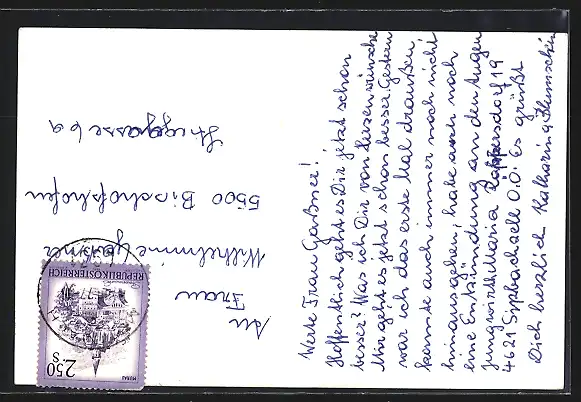 Werte Frau Gaßner!
Hoffentlich geht es Dir jetzt schon
besser? Was ich Dir von Herzen wünsche
Mir geht es jetzt schon besser. Gestern
war ich das erste Mal draußen,
konnte auch immer noch nicht
hinausgehen, habe auch noch
eine Entzündung an den Augen
Jungwirth Maria Rappersdorf 19
4621 Sipbachzell O.Ö. Es grüßt
Dich herzlich Katharina
An
Frau
Wilhelmine Gaßner
5500 Bischofshofen
6a
REPUBLIK ÖSTERREICH
2.50 S
MURAU